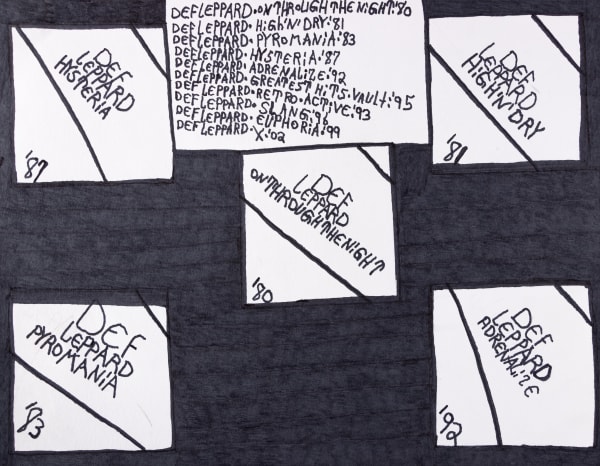 DEF LEPPARD. ON THROUGH THE NIGHT:'80
DEF LEPPARD. HIGH'N'DRY:'81
DEF LEPPARD. PYROMANIA:'83
DEF LEPPARD. HYSTERIA:'87
DEF LEPPARD. ADRENALIZE:'92
DEF LEPPARD. GREATEST HITS. VAULT:'95
DEF LEPPARD. RETRO. ACTIVE:'93
DEF LEPPARD. SLANG:'96
DEF LEPPARD. EUPHORIA:'99
DEF LEPPARD. X:'02
DEF
LEPPARD
HISTERIA
'87
DEF
LEPPARD
HIGH'N'DRY
'81
DEF
LEPPARD
ON THROUGH THE NIGHT
'80
DEF
LEPPARD
PYROMANIA
'83
DEF
LEPPARD
ADRENALIZE
'92